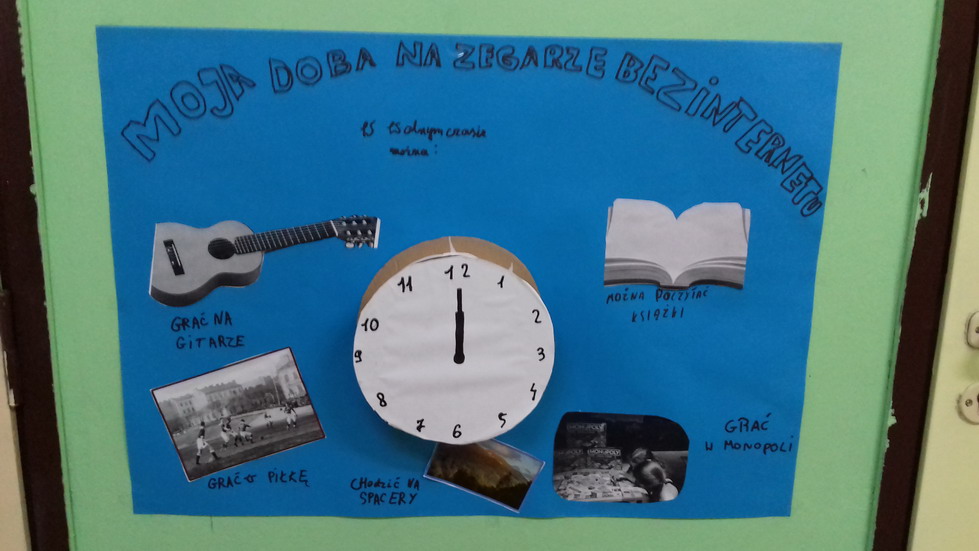 MOJA DOBA NA ZEGARZE BEZ INTERNETU
można:
GRAĆ NA
GITARZE
12
1
2
3
4
5
6
7
8
9
10
11
MOŻNA POCZYTAĆ
KSIĄŻKI
GRAĆ W PIŁKĘ
CHODZIĆ NA
SPACERY
MONOPOLY
MONOPOLY
GRAĆ
W MONOPOLI